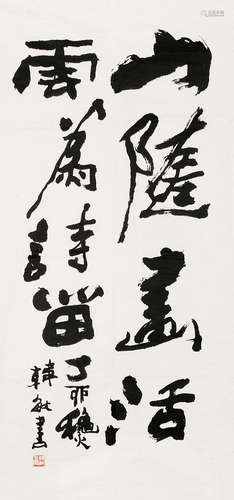 山隨畫活
雲為詩留
丁卯秋
韓敏書